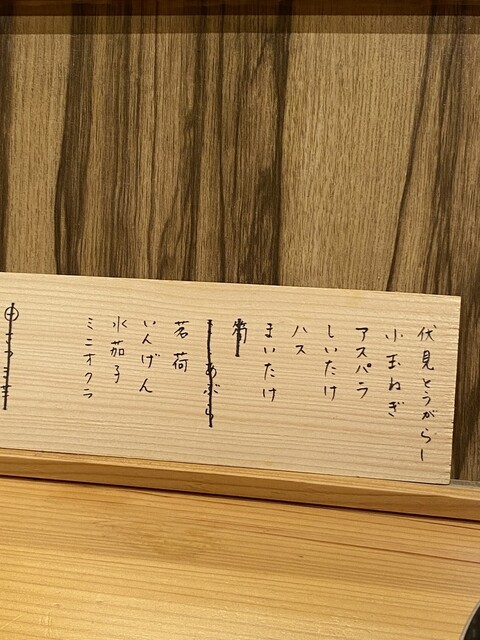 伏見とうがらし
小玉ねぎ
アスパラ
しいたけ
ハス
まいたけ
茗荷
いんげん
水茄子
ミニオクラ